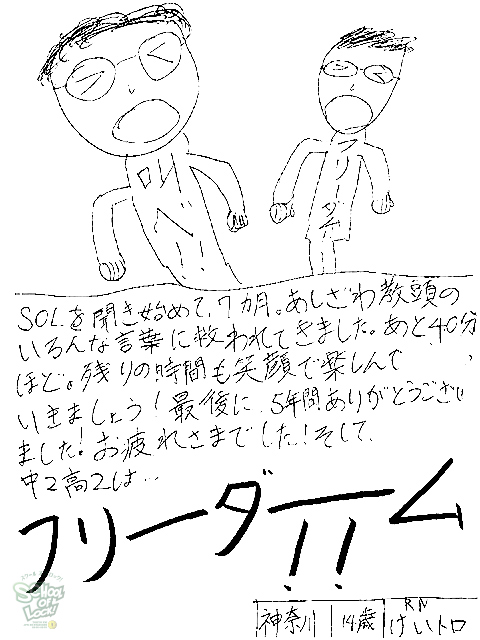 フリーダム
SOLを聞き始めて、7ヵ月。あしざわ教頭の
いろんな言葉に救われてきました。あと40分
ほど。残りの時間も笑顔で楽しんで
いきましょう!最後に、5年間ありがとうござい
ました!お疲れさまでした!そして、
中2高2は…
フリーダーム!!
SCHOOL OF LOCK!
神奈川 14歳 RN けいトロ